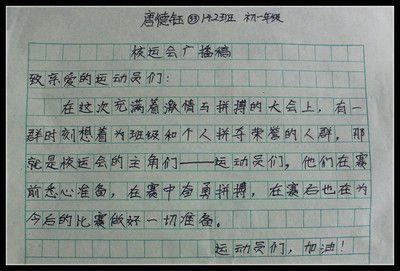 唐健钰 33 142班 初一年级
校运会广播稿
致亲爱的运动员们：
在这次充满着激情与拼搏的大会上，有一
群时刻想着为班级和个人拼夺荣誉的人群，那
就是校运会的主角们——运动员们，他们在赛
前悉心准备，在赛中奋勇拼搏，在赛后也在为
今后的比赛做好一切准备。
运动员们，加油！